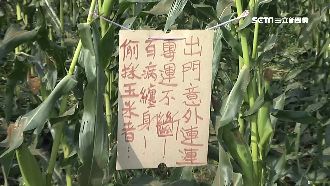 SETN 三立新聞網
偷採玉米者:
百病纏身~
噩運不斷~
出門意外連連